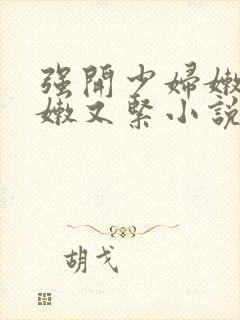 强開少婦嫩
嫩又緊小說
胡戈